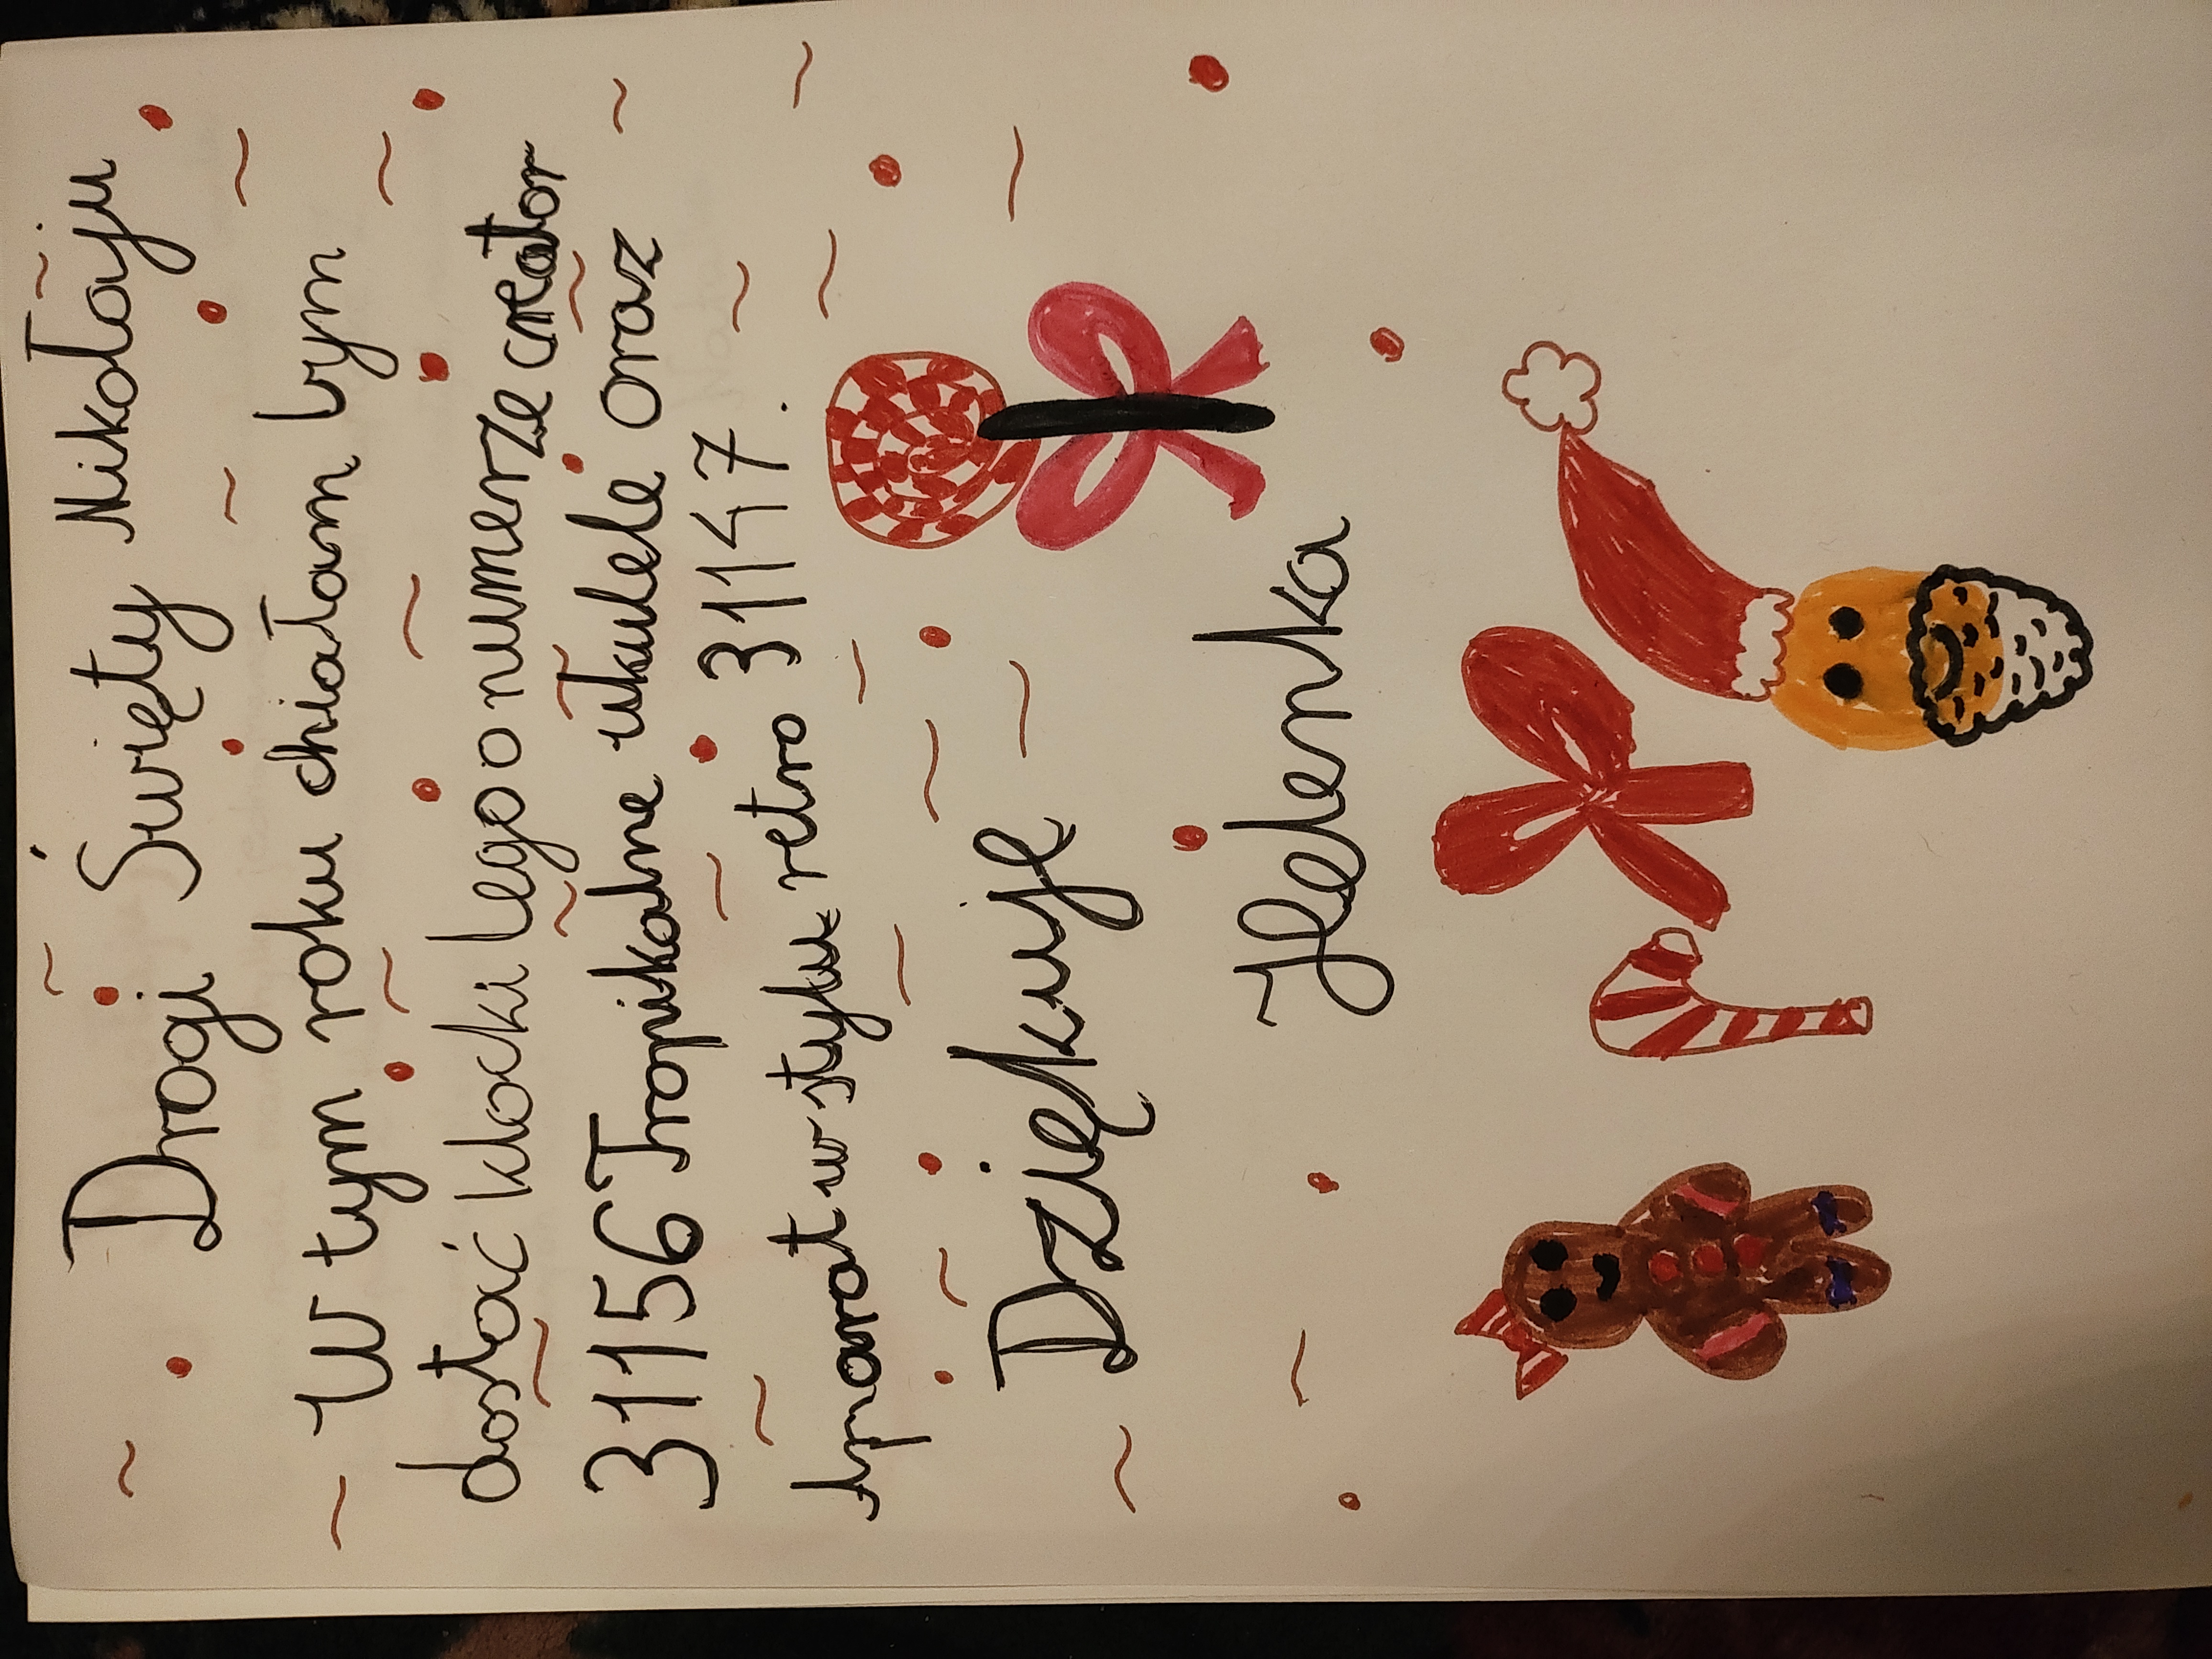 Drogi Święty Mikołaju
W tym roku chiałam bym
dostać klocki Lego o numerze creator
31156 Tropikalne ukulele oraz
Aparat w styluk retro 31147.
Dziękuję
Helenka